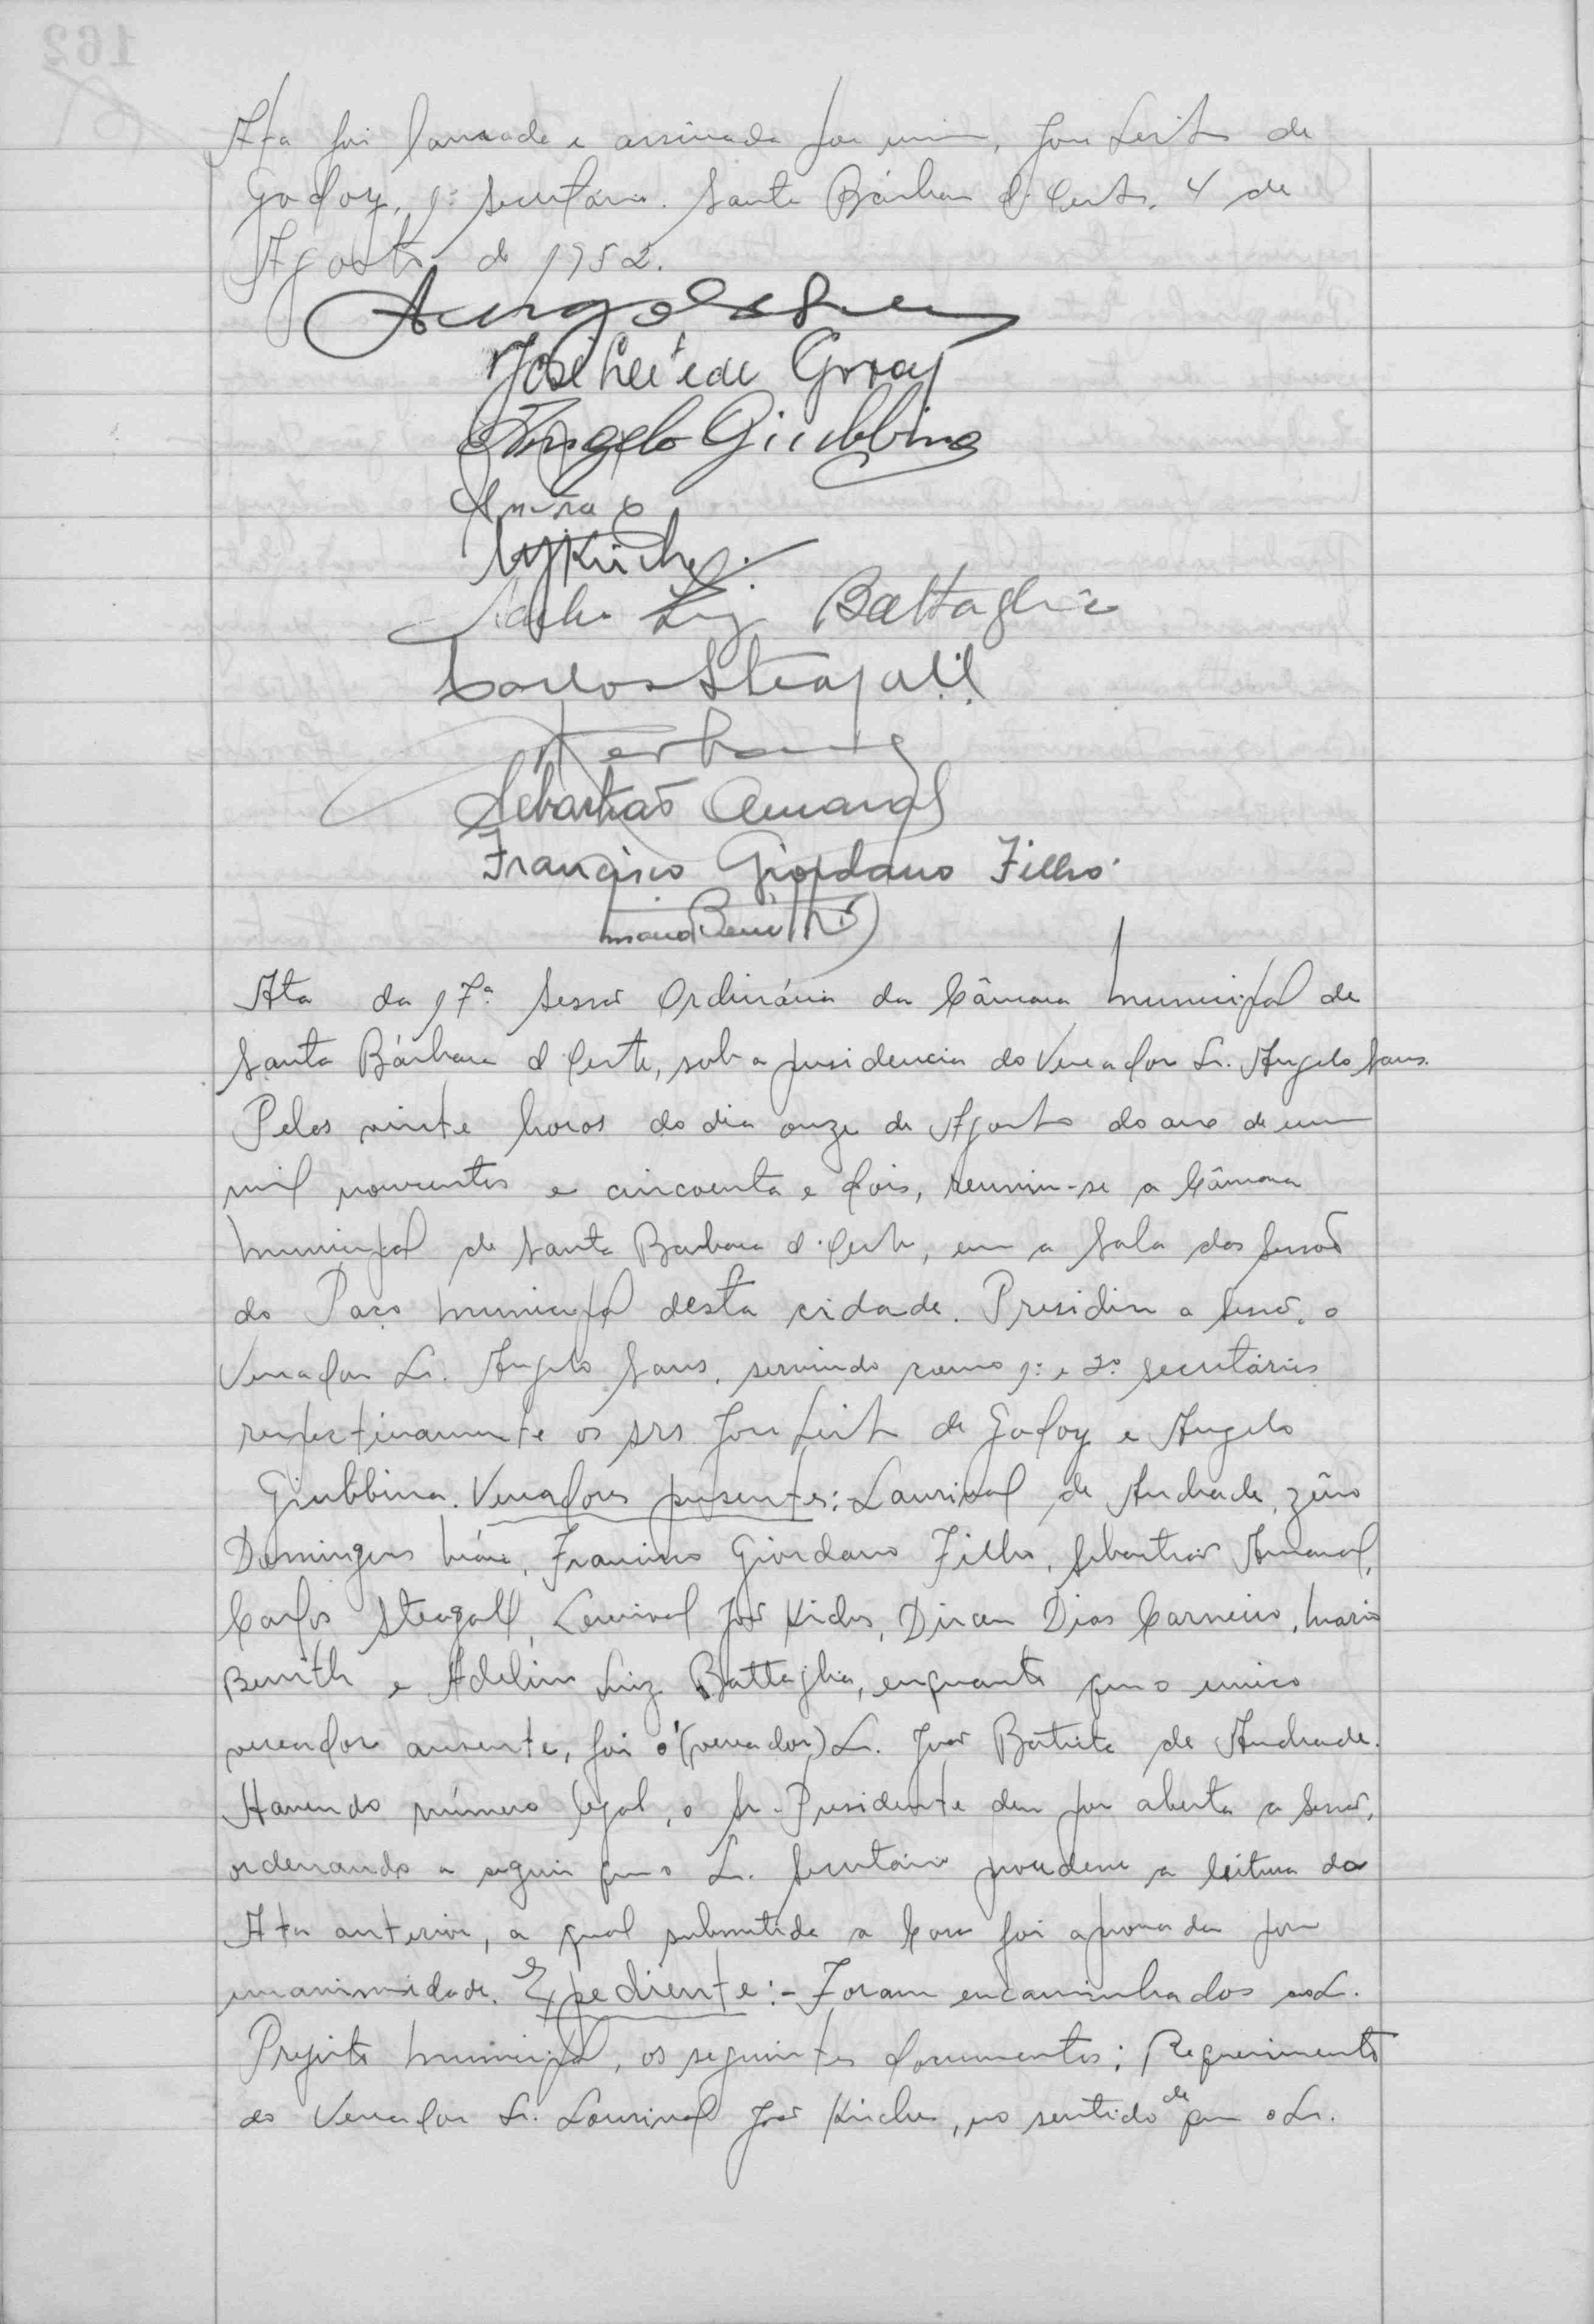 Ata foi lavrada e assinada por mim, José Leite de
Godoy, 1º Secretário. Santa Bárbara d'Oeste, 4 de
Agosto de 1952.
José Leite de Godoy
Angelo Giubbina
Luiz Battaglia
Carlos Steagall
Sebastião Amaral
Francisco Giordano Filho
Ata da 17ª Sessão Ordinária da Câmara Municipal de
Santa Bárbara d'Oeste, sob a presidencia do Vereador Sr. Angelo Sans.
Pelas vinte horas do dia onze de Agosto do ano de um
mil novecentos e cincoenta e dois, reuniu-se a Câmara
Municipal de Santa Barbara d'Oeste, em a Sala das Sessões
do Paço Municipal desta cidade. Presidiu a Sessão, o
Vereador Sr. Angelo Sans, servindo como 1º e 2º Secretários
respectivamente os srs José Leite de Godoy e Angelo
Giubbina. Vereadores presentes:- Laurival de Andrade, Zêno
Domingues Maia, Francisco Giordano Filho, Sebastião Amaral,
Carlos Steagall, Lourival José Kirche, Dirceu Dias Carneiro, Mario
e Adelino Luiz Battaglia, enquanto que o unico
vereador ausente, foi o (vereador) Sr. João Batista de Andrade.
Havendo número legal, o Sr. Presidente deu por aberta a Sessão,
ordenando a seguir que o Sr. Secretário procedesse a leitura da
Ata anterior, a qual submetida a Casa foi aprovada por
unanimidade. Expediente:- Foram encaminhados ao Sr.
Prefeito Municipal, os seguintes documentos: Requerimento
do Vereador Sr. Lourival José Kirche, no sentido de que o Sr.